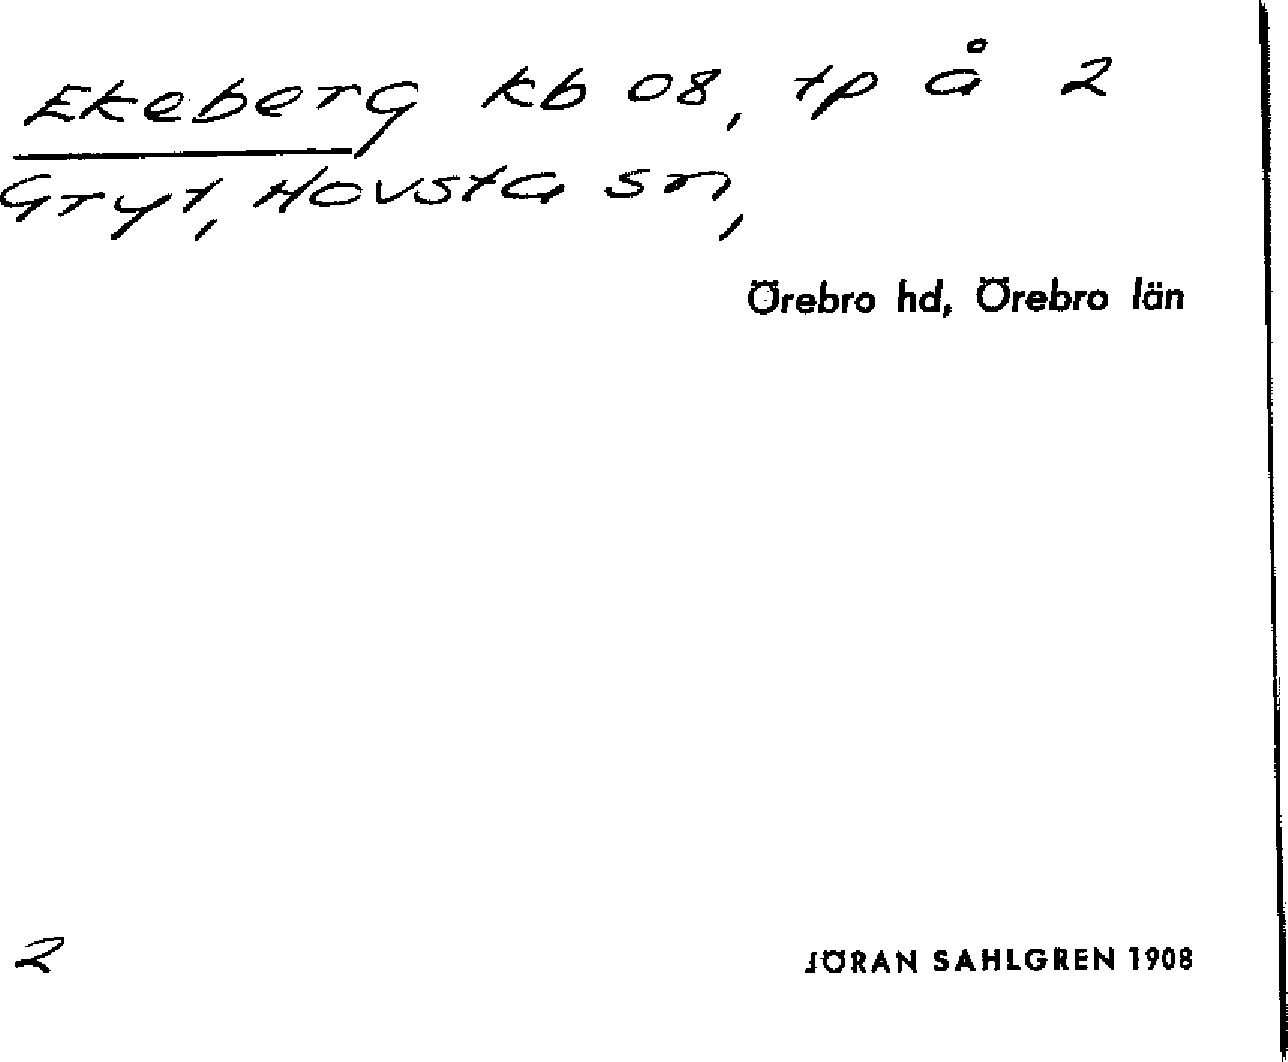 Ekeberg kb 08, tp å 2
Gryt, Hovsta sn,
Örebro hd, Örebro län
2
JÖRAN SAHLGREN 1908